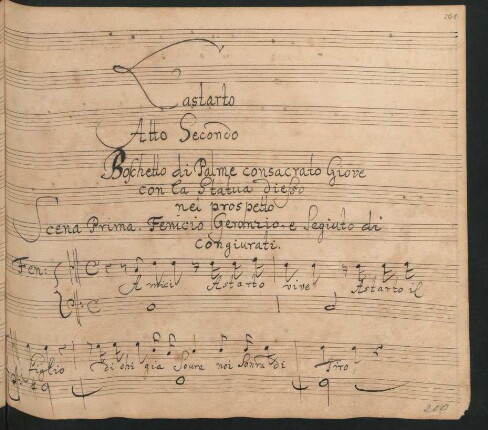 201
L'astarto
Atto Secondo
Boschetto di Palme consacrato Giove
con la Statua di esso
nel prospeto
Scena Prima. Fenicio Geronzio e Seguito di
Congiurati.
Fen:
Amici Astarto vive Astarto il
Figlio di chi gia Soura noi Soura di Tiro
200